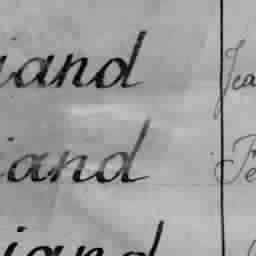 iand Jea
iand Fe
iand